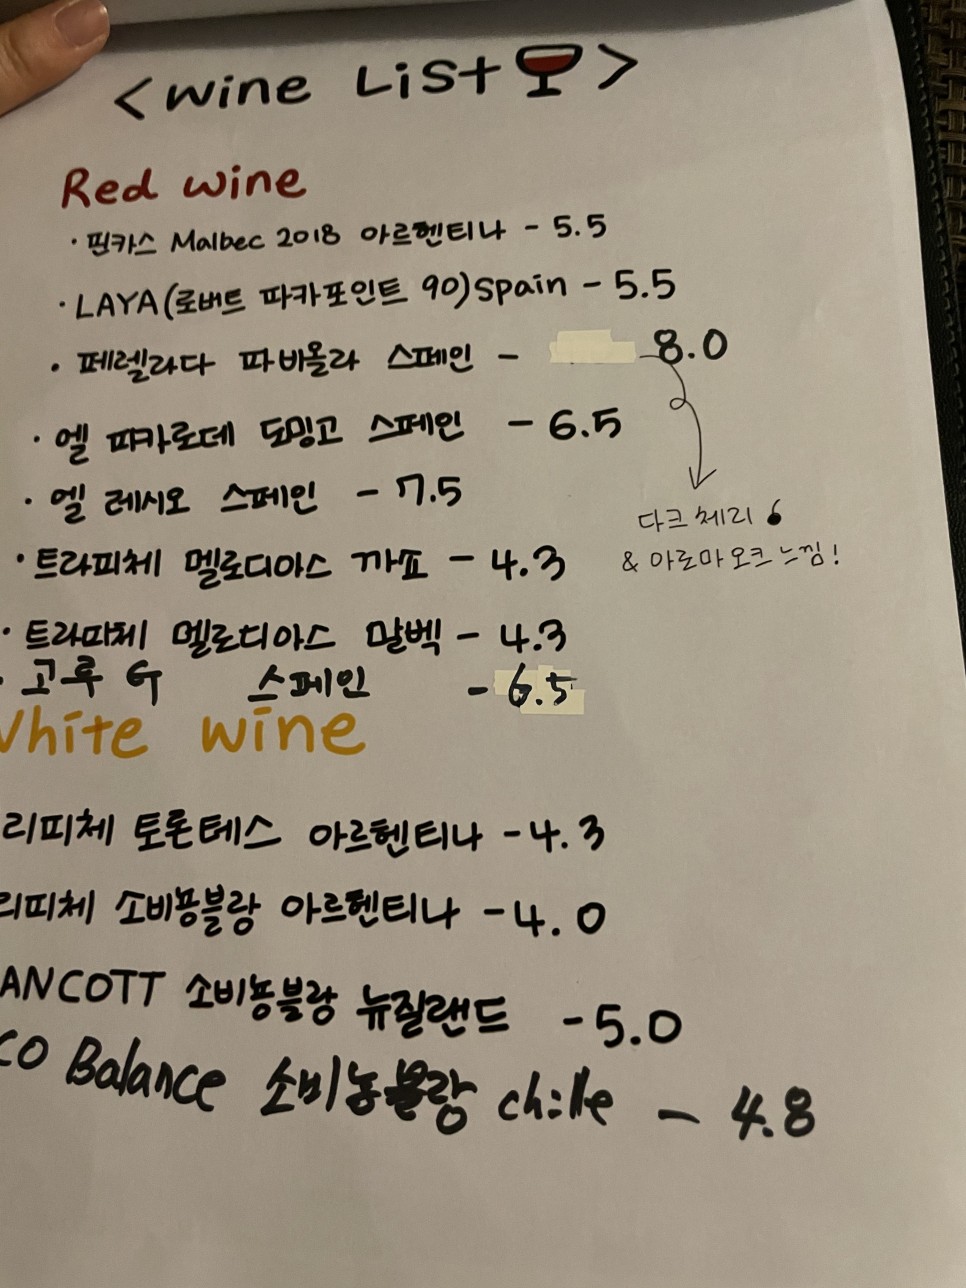 <wine List>
Red wine
· 핀카스 Malbec 2018 아르헨티나 - 5.5
· LAYA(로버트 파카포인트 90)spain - 5.5
· 페렐라다 파비올라 스페인 - 8.0
· 엘 파카로데 도밍고 스페인 - 6.5
다크체리
· 엘 레시오 스페인 - 7.5
& 아로마오크느낌!
· 트라피체 멜로디아스 까쇼 - 4.3
· 트라피체 멜로디아스 말벡 - 4.3
· 고루 G 스페인 - 6.5
White wine
리피체 토론테스 아르헨티나 - 4.3
리피체 소비뇽블랑 아르헨티나 - 4.0
ANCOTT 소비뇽블랑 뉴질랜드 - 5.0
CO Balance 소비뇽블랑 chile - 4.8